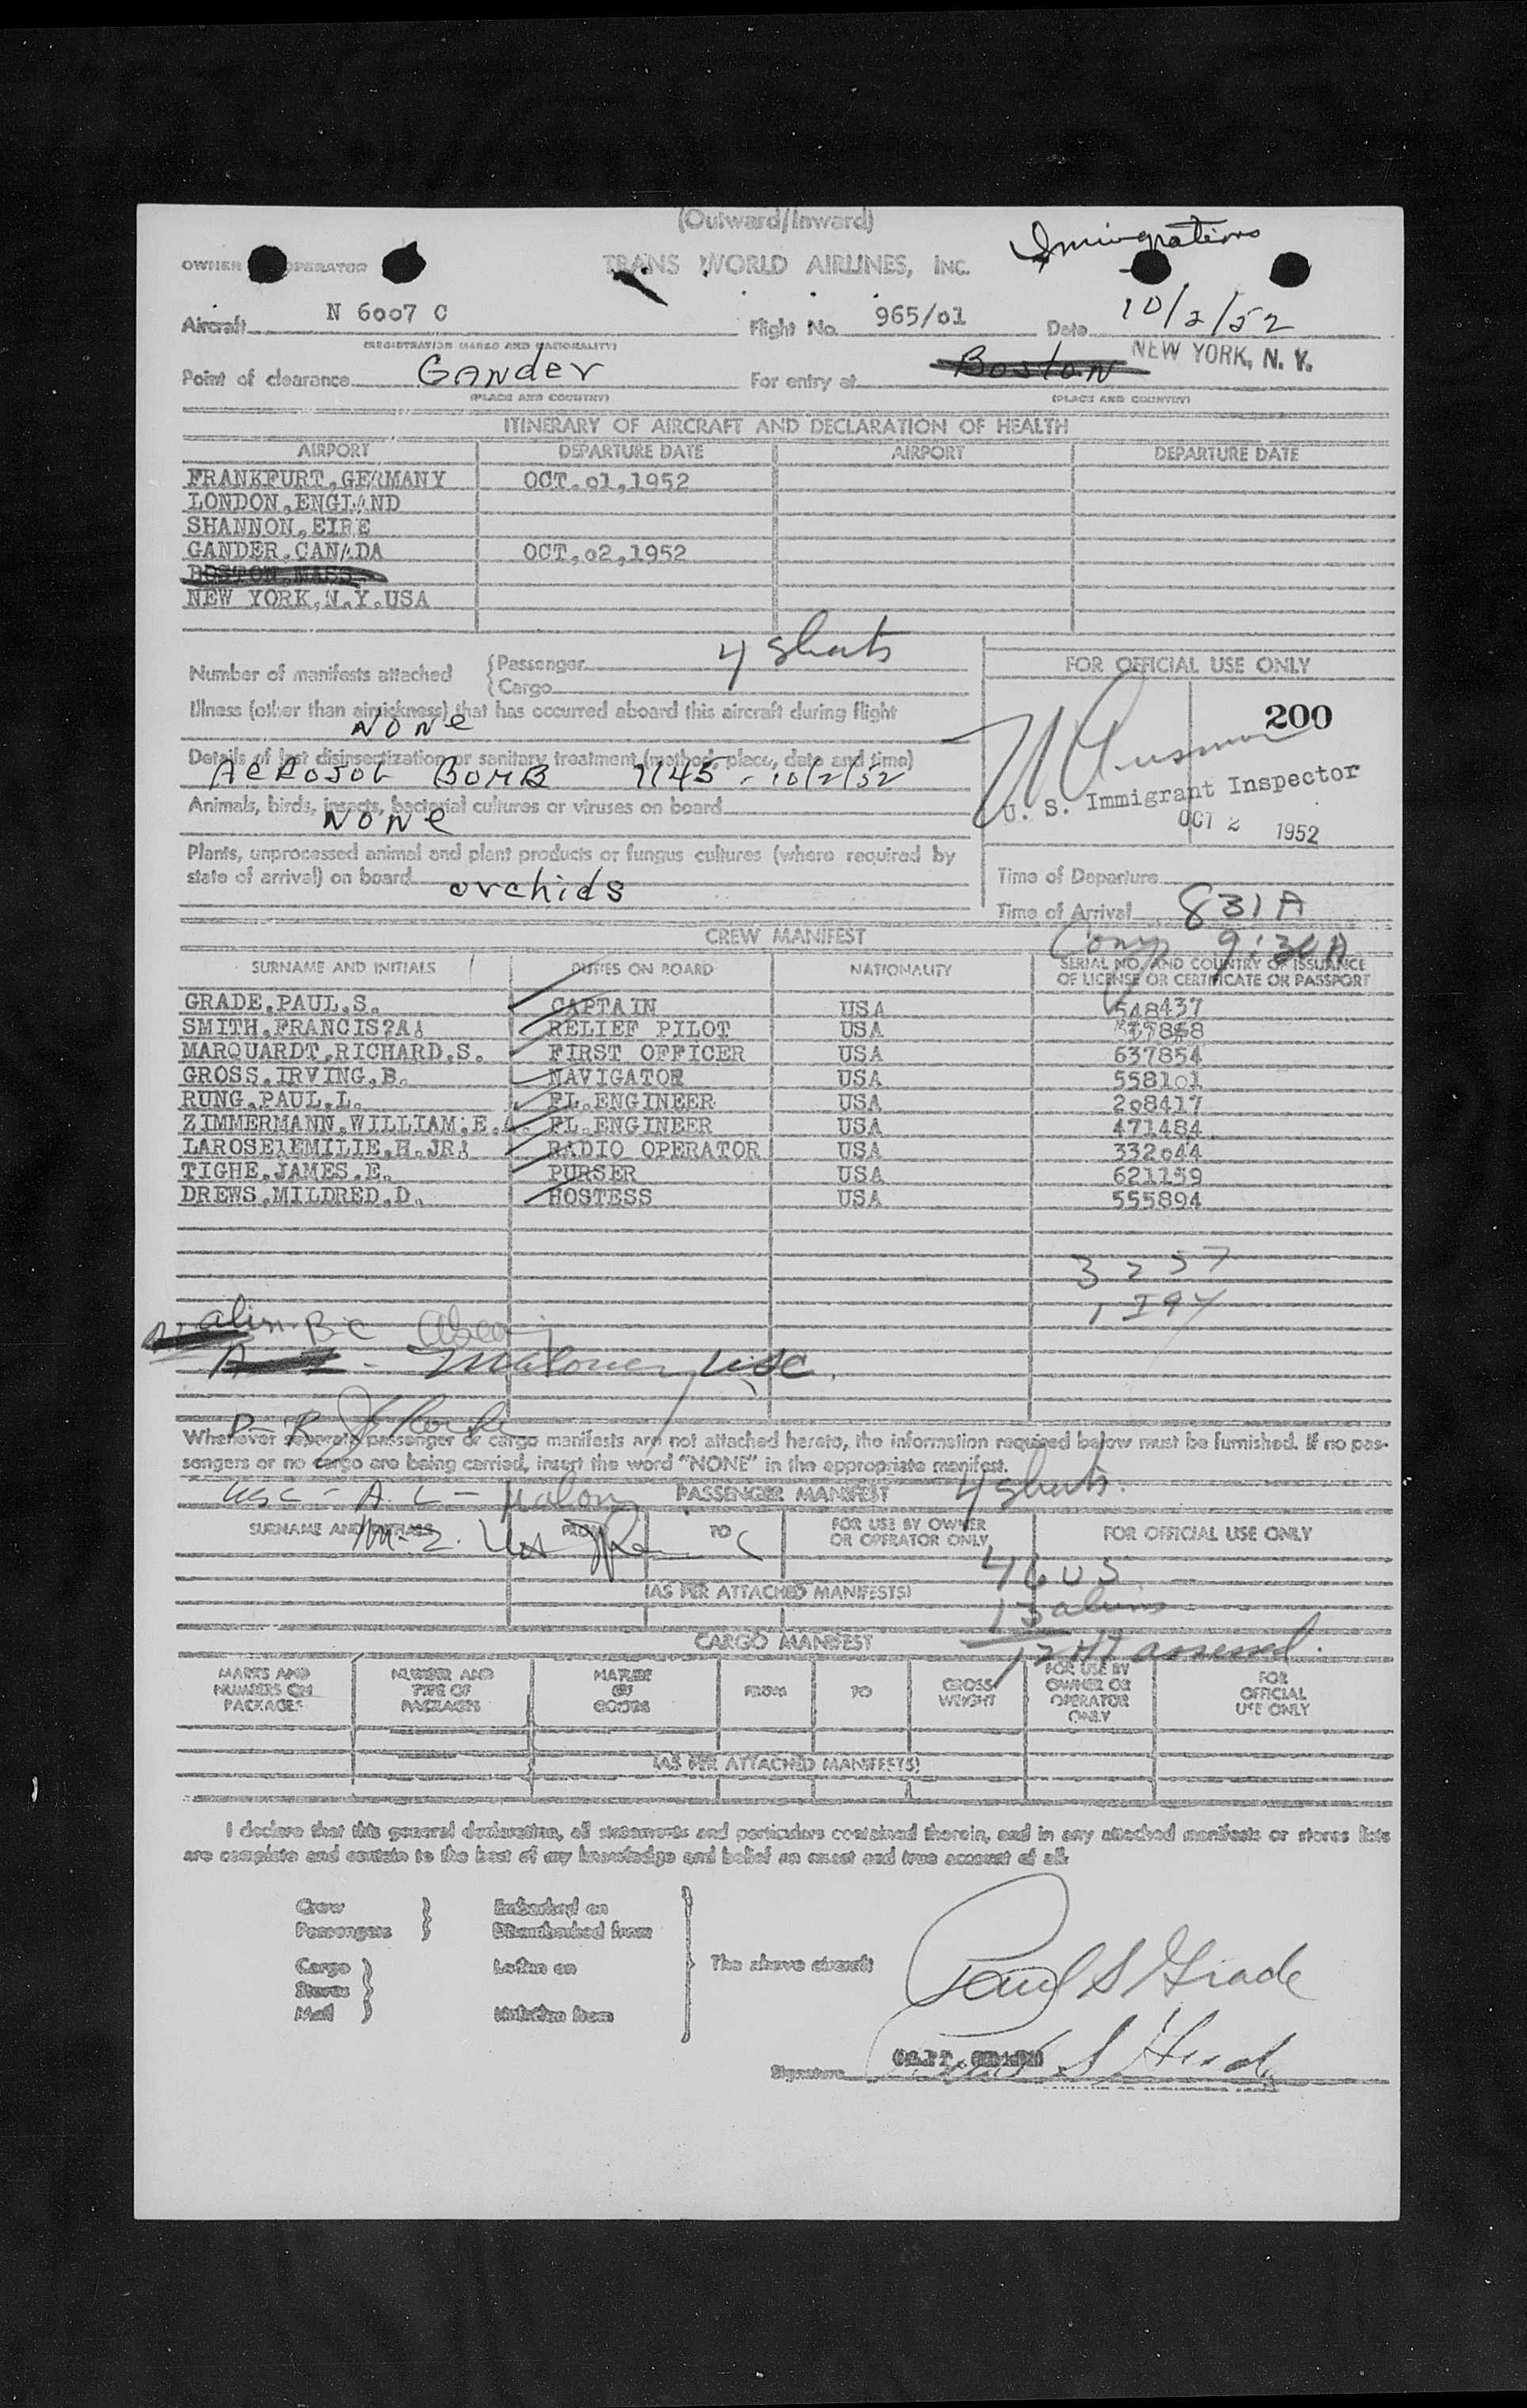 (Outward/Inward)
Immigrations
OWNER OPERATOR TRANS WORLD AIRLINES, INC.
Aircraft N 6007 C Flight No. 965/01 Date 10/2/52
(REGISTRATION MARKS AND NATIONALITY)
Point of clearance Gander For entry at Boston NEW YORK, N. Y.
(PLACE AND COUNTRY) (PLACE AND COUNTRY)
ITINERARY OF AIRCRAFT AND DECLARATION OF HEALTH
AIRPORT DEPARTURE DATE AIRPORT DEPARTURE DATE
FRANKFURT,GERMANY OCT.01,1952
LONDON,ENGLAND
SHANNON,EIRE
GANDER,CANADA OCT,02,1952
BOSTON,MASS
NEW YORK,N.Y.USA
Number of manifests attached Passenger 4 sheets
Cargo
FOR OFFICIAL USE ONLY
Illness (other than airsickness) that has occurred aboard this aircraft during flight
None
200
Details of last disinsectization or sanitary treatment (method, place, date and time)
AEROSOL BOMB 1145 - 10/2/52
Animals, birds, insects, bacterial cultures or viruses on board
None
U. S. Immigrant Inspector
OCT 2 1952
Plants, unprocessed animal and plant products or fungus cultures (where required by
state of arrival) on board orchids
Time of Departure
Time of Arrival 831 A
CREW MANIFEST
SURNAME AND INITIALS DUTIES ON BOARD NATIONALITY SERIAL NO. AND COUNTRY OF ISSUANCE
OF LICENSE OR CERTIFICATE OR PASSPORT
GRADE,PAUL,S. CAPTAIN USA 548437
SMITH,FRANCIS?A! RELIEF PILOT USA
MARQUARDT,RICHARD,S. FIRST OFFICER USA 637854
GROSS,IRVING,B. NAVIGATOR USA 558101
RUNG,PAUL,L. FL.ENGINEER USA 208417
ZIMMERMANN,WILLIAM,E. FL.ENGINEER USA 471484
LAROSE!EMILIE,H,JR! RADIO OPERATOR USA 332044
TIGHE,JAMES,E. PURSER USA 621159
DREWS,MILDRED,D. HOSTESS USA 555894
Whenever separate passenger or cargo manifests are not attached hereto, the information required below must be furnished. If no pas-
sengers or no cargo are being carried, insert the word "NONE" in the appropriate manifest.
PASSENGER MANIFEST 4 sheets.
SURNAME AND INITIALS FROM TO FOR USE BY OWNER
OR OPERATOR ONLY FOR OFFICIAL USE ONLY
46 US
(AS PER ATTACHED MANIFESTS)
13 aliens
CARGO MANIFEST
MARKS AND
NUMBERS ON
PACKAGES NUMBER AND
TYPE OF
PACKAGES NATURE
OF
GOODS FROM TO GROSS
WEIGHT FOR USE BY
OWNER OR
OPERATOR
ONLY FOR
OFFICIAL
USE ONLY
(AS PER ATTACHED MANIFESTS)
I declare that this general declaration, all statements and particulars contained therein, and in any attached manifests or stores lists
are complete and contain to the best of my knowledge and belief an exact and true account of all:
Crew Embarked on
Passengers Disembarked from
Cargo Laden on The above aircraft
Stores
Mail Unladen from
Paul S Grade
Signature